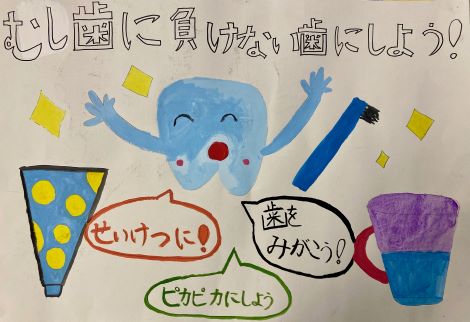 むし歯に負けない歯にしよう!
せいけつに!
歯を
みがこう!
ピカピカにしよう